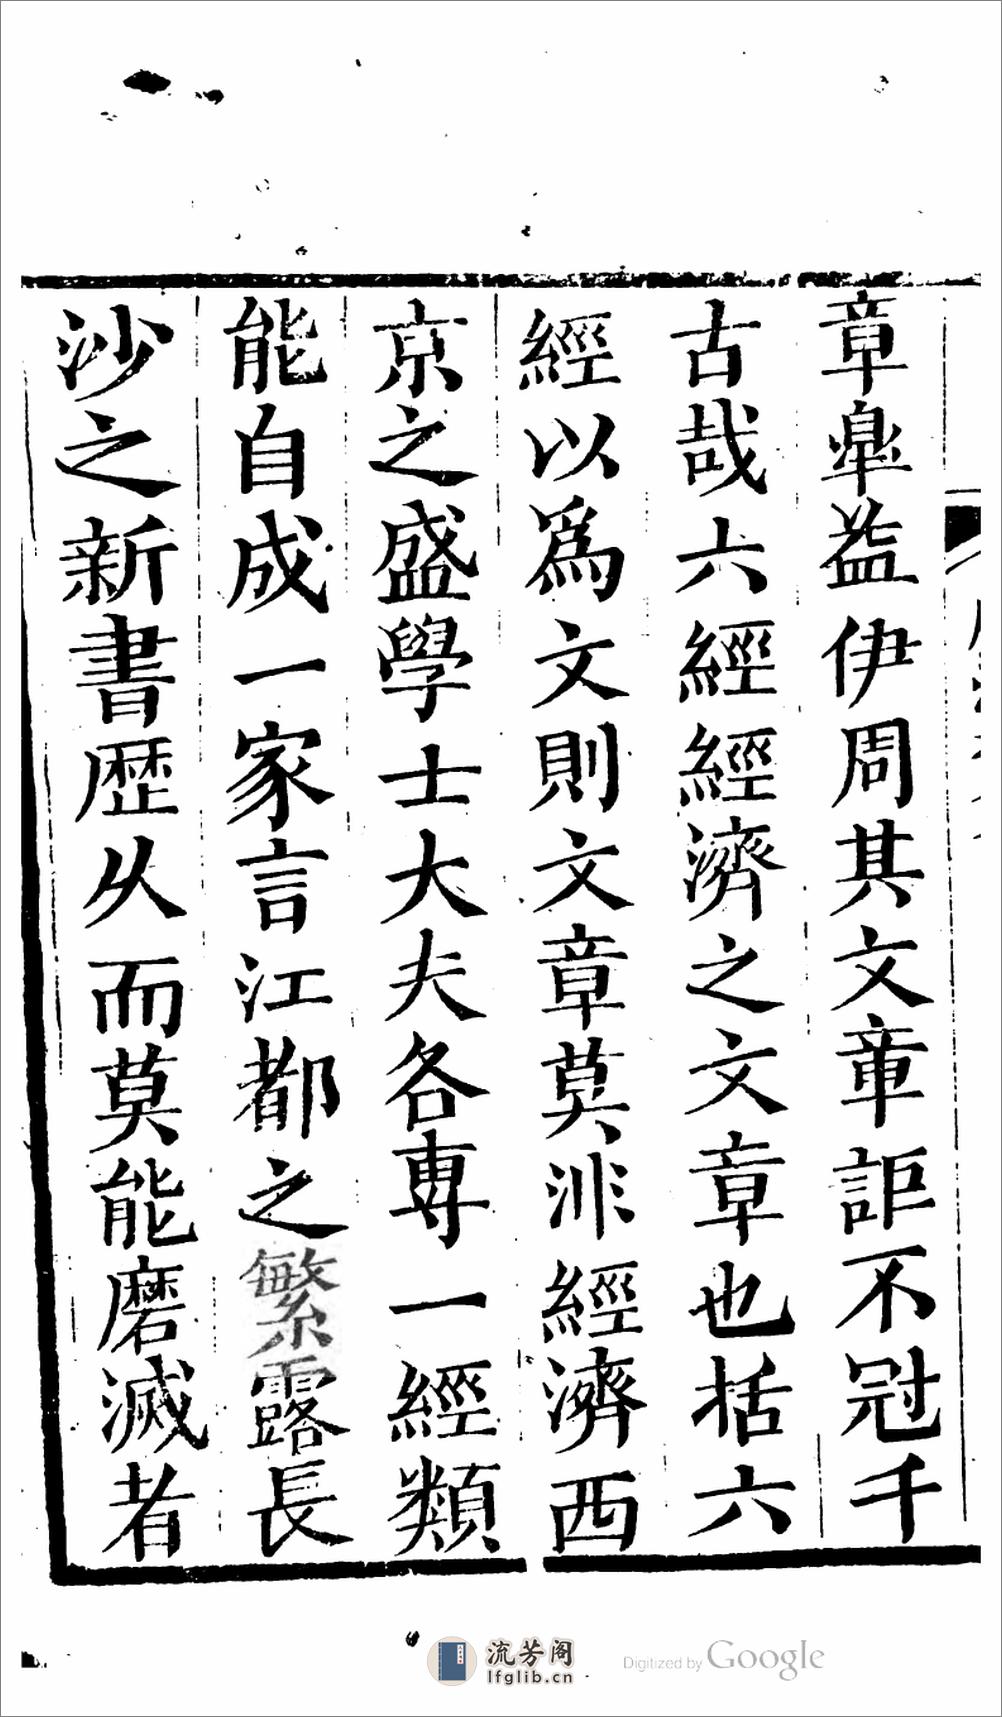 章臯益伊周其文章詎不冠千
古哉六經經濟之文章也括六
經以爲文則文章莫非經濟西
京之盛學士大夫各專一經類
能自成一家言江都之繁露長
沙之新書歷从而莫能磨滅者
流芳阁
lfglib.cn
Digitized by Google